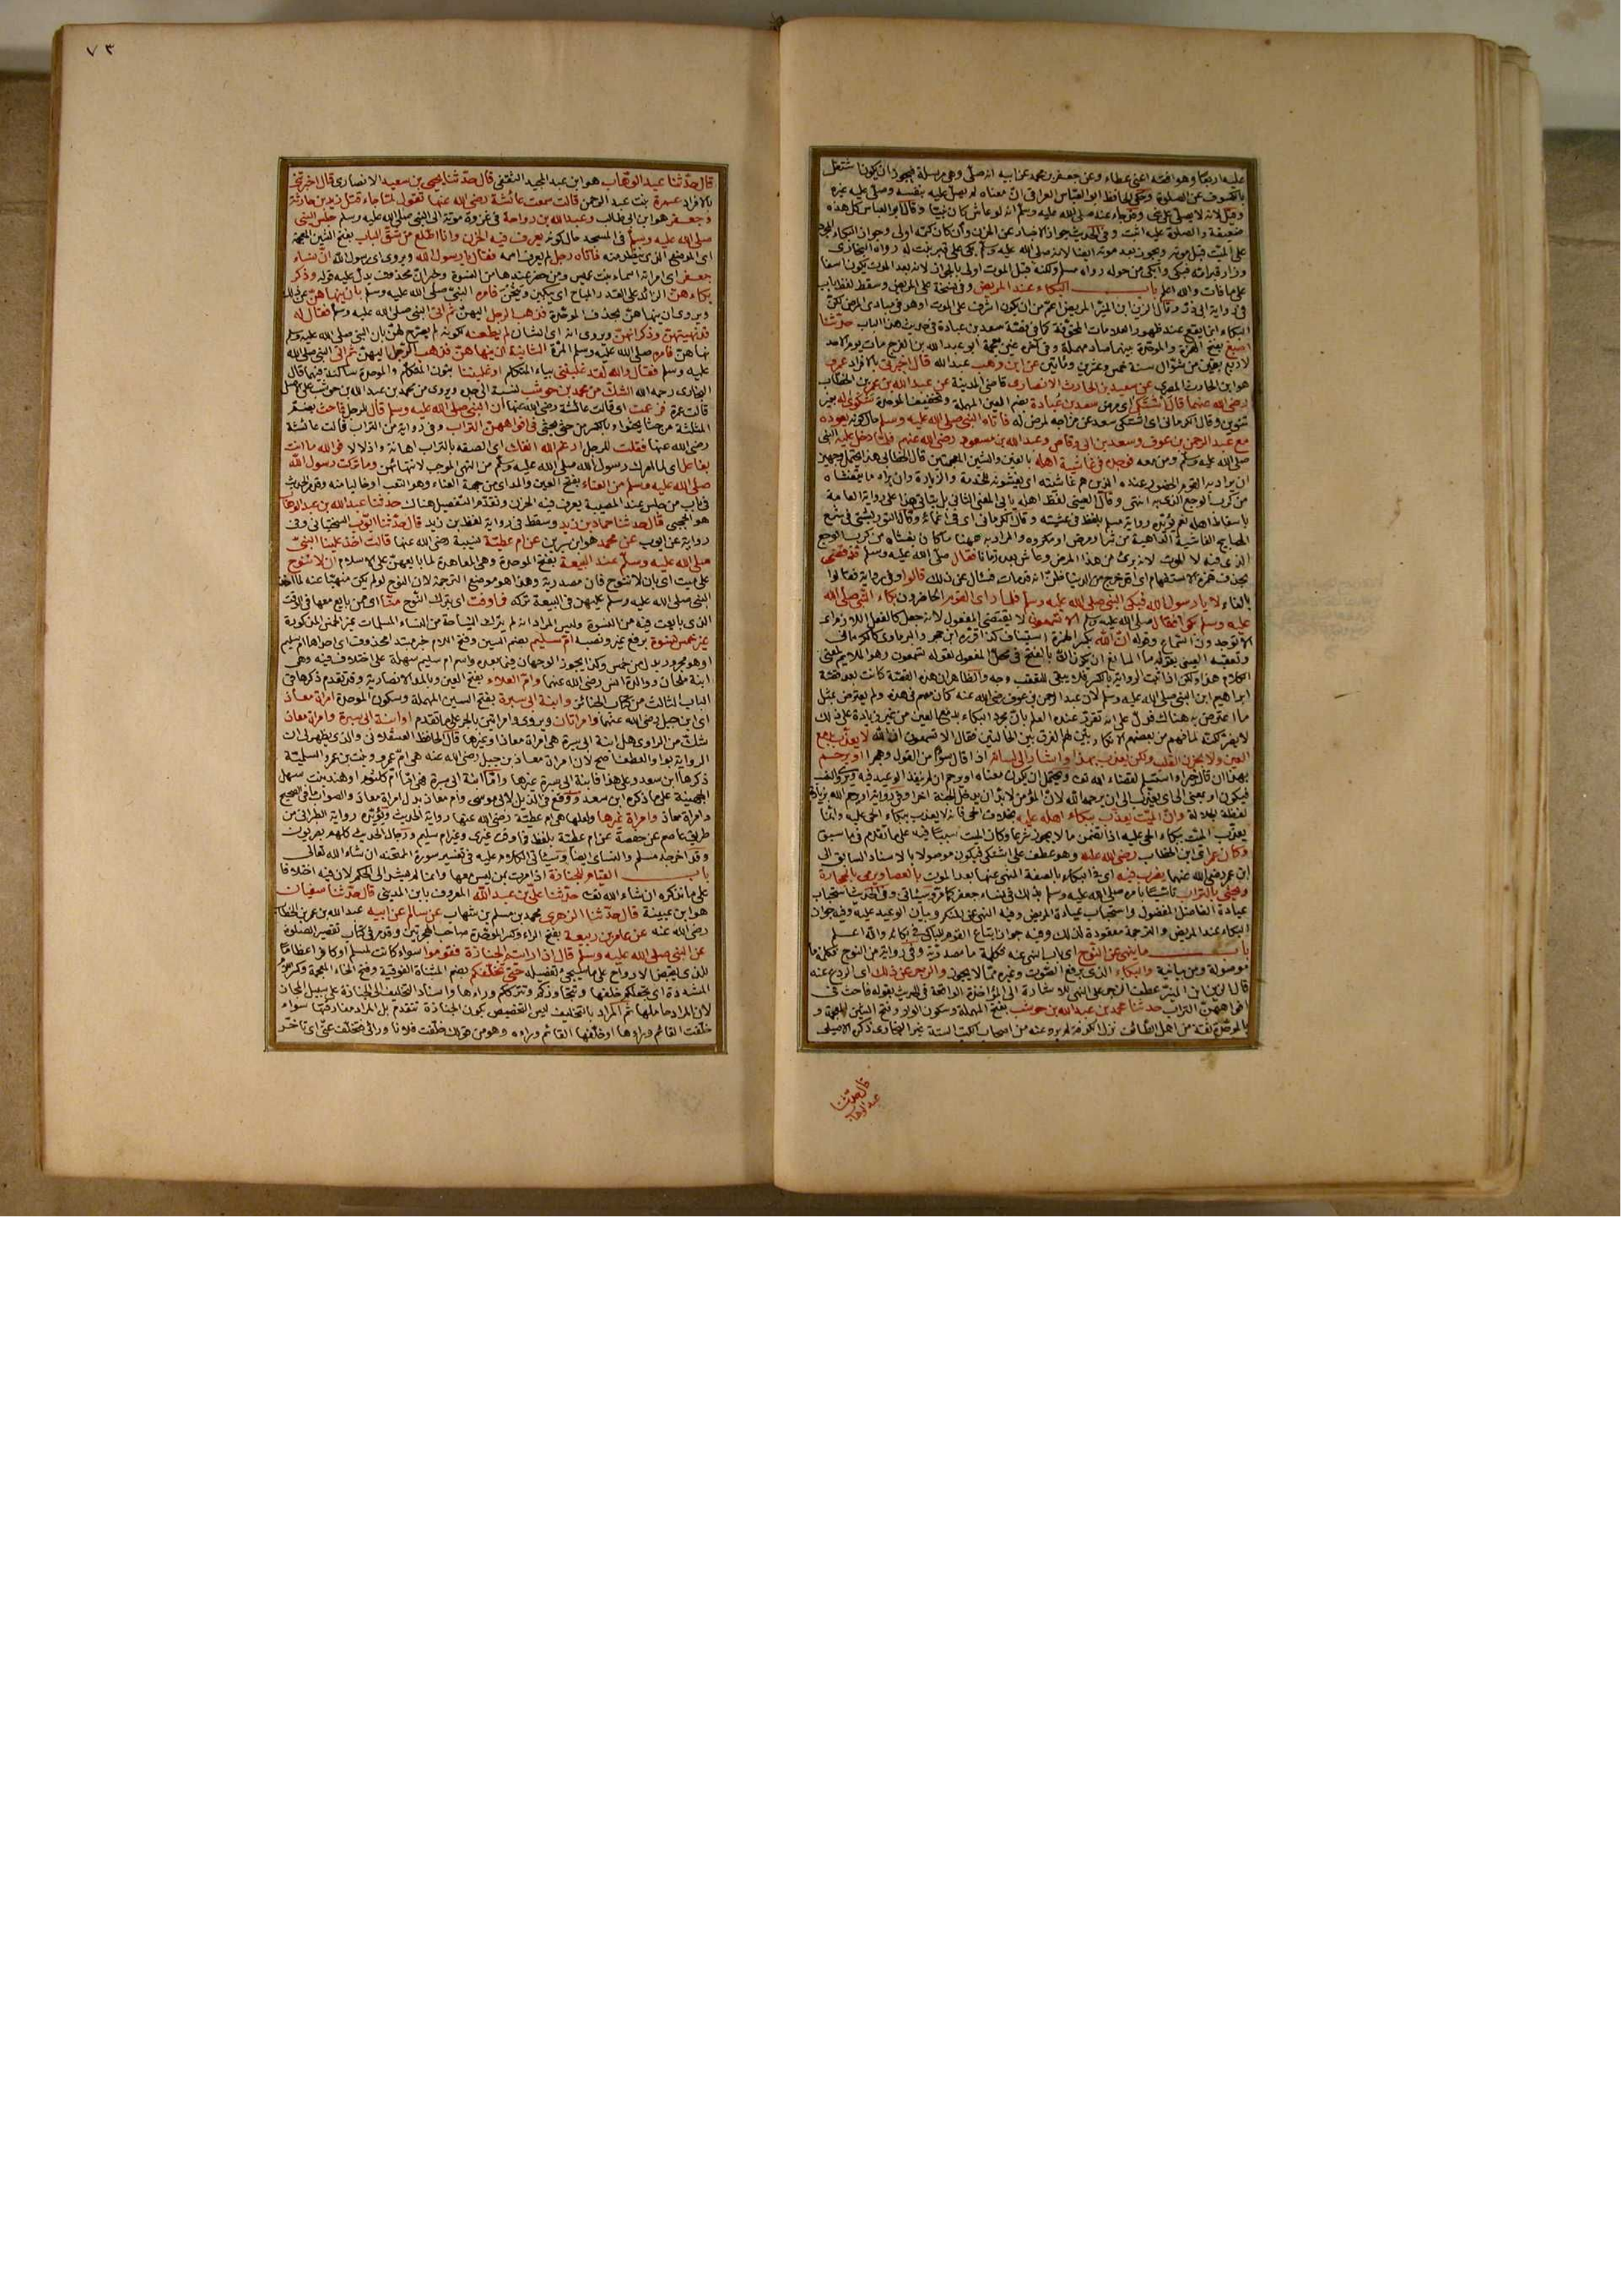 عليه اربعا وهو افقه اعنى عطاء وعن جعفر بن محمد عن ابيه انه صلى وهي مرسلة فيجوز ان يكونا اشتغل
بالكسوف عن الصلوة وحكى الحافظ ابو العباس العراقى ان معناه لم يصل عليه بنفسه وصلى عليه غيره
وقيل لانه لا يصلى على نبى وقد جاء عنه صلى الله عليه وسلم انه لو عاش كان نبيا وقال ابو العباس كل هذه
ضعيفة والصلوة عليه اثبت وفى الحديث جواز الاخبار عن الحزن وان كان كتمه اولى وجواز البكاء
على الميت قبل موته ويجوز بعد موته ايضا لانه صلى الله عليه وسلم بكى على قبر بنت له رواه البخارى
وزار قبر امه فبكى وابكى من حوله رواه مسلم ولكنه قبل الموت اولى بالجواز لانه بعد الموت يكون اسفا
على ما فات والله اعلم باب البكاء عند المريض وفى نسخة على المريض وسقط لفظ باب
فى رواية ابى ذر وقال الزين ابن المنير المريض اعم من ان يكون اشرف على الموت او هو فى مبادى المرض لكن
البكاء انما يقع عند ظهور العلامات المخوفة كما فى قصة سعد بن عبادة فى حديث هذا الباب حدثنا
اصبغ بفتح الهمزة والموحدة بينهما صاد مهملة وفى اخره غين معجمة ابو عبد الله بن الفرج مات يوم الاحد
لاربع بقين من شوال سنة خمس وعشرين ومائتين عن ابن وهب عبد الله قال اخبرنى بالافراد عمرو
هو ابن الحارث المصرى عن سعيد بن الحارث الانصارى قاضى المدينة عن عبد الله بن عمر بن الخطاب
رضى الله عنهما قال اشتكى اى مرض سعد بن عبادة بضم العين المهملة وتخفيف الموحدة شكوى له بغير
تنوين وقال الكرمانى اى اشتكى سعد عن مزاجه لمرض له فاتاه النبى صلى الله عليه وسلم حال كونه يعوده
مع عبد الرحمن بن عوف وسعد بن ابى وقاص وعبد الله بن مسعود رضى الله عنهم فلما دخل عليه النبى
صلى الله عليه وسلم ومن معه فوجده فى غاشية اهله بالغين والشين المعجمتين قال الخطابى هذا يحتمل وجهين
ان يراد به القوم الحضور عنده الذين هم غاشيته اى يغشونه للخدمة والزيارة وان يراد ما يتغشاه
من كرب الوجع الذى به انتهى وقال العينى لفظ اهله يابى المعنى الثانى بل يتأتى هذا على رواية العامة
باسقاط اهله نعم يؤيده رواية مسلم بلفظ فى غشيته وقال الكرمانى اى فى اغماء وقال التوربشتى فى شرح
المصابيح الغاشية الداهية من شر او مرض او مكروه والمراد به ههنا ما كان يتغشاه من كرب الوجع
الذى فيه لا الموت لانه برئ من هذا المرض وعاش بعده زمانا فقال صلى الله عليه وسلم قد قضى
بحذف همزة الاستفهام اى اقد خرج من الدنيا ظن انه قد مات فسال عن ذلك قالوا وفى رواية فقالوا
بالفاء لا يا رسول الله فبكى النبى صلى الله عليه وسلم فلما راى القوم الحاضرون بكاء النبى صلى الله
عليه وسلم بكوا فقال صلى الله عليه وسلم الا تسمعون لا يقتضى المفعول لانه جعل كالفعل اللازم اى
الا توجدون السماع وقوله ان الله بكسر الهمزة استيناف كذا قرره ابن حجر والبرماوى كالكرمانى
وتعقبه العينى بقوله ما المانع ان يكون ان بالفتح فى محل المفعول لقوله تسمعون وهو الملايم لمعنى
الكلام هذا ولكن اذا ثبت الرواية بالكسر فلا يبقى للتعقب وجه والظاهر ان هذه القصة كانت بعد قصة
ابراهيم ابن النبى صلى الله عليه وسلم لان عبد الرحمن بن عوف رضى الله عنه كان معهم فى هذه ولم يعترض بمثل
ما اعترض به هناك فدل على انه تقرر عنده العلم بان مجرد البكاء بدمع العين من غير زيادة على ذلك
لا يضر لكنه لما فهم من بعضهم الانكار بين لهم الفرق بين الحالتين فقال الا تسمعون ان الله لا يعذب بدمع
العين ولا بحزن القلب ولكن يعذب بهذا واشار الى لسانه اذا قال سوءا من القول وهجرا او يرحم
بهذا ان قال خيرا واستسلم لقضاء الله تعالى ويحتمل ان يكون معناه او يرحم ان لم ينفذ الوعيد فيه
فيكون او بمعنى الى اى يعذب الى ان يرحمه الله لان المؤمن لا بد ان يدخل الجنة اخرا وفى رواية او يرحم الله بزيادة
لفظة الجلالة وان الميت يعذب ببكاء اهله عليه بخلاف الحى فانه لا يعذب ببكاء الحى عليه وانما
يعذب الميت ببكاء الحى عليه اذا تضمن ما لا يجوز شرعا وكان الميت سببا فيه على ما تقدم فيما سبق
وكان عمر اى ابن الخطاب رضى الله عنه وهو عطف على اشتكى فيكون موصولا بالاسناد السابق الى
ابن عمر رضى الله عنهما يضرب فيه اى فى البكاء بالصفة المنهى عنها بعد الموت بالعصا ويرمى بالحجارة
ويحثى بالتراب تاسيا بامره صلى الله عليه وسلم بذلك فى نساء جعفر كما مر وسياتى وفى الحديث استحباب
عيادة الفاضل المفضول واستحباب عيادة المريض وفيه النهى عن المنكر وبيان الوعيد عليه وفيه جواز
البكاء عند المريض والترجمة معقودة لذلك وفيه جواز اتباع القوم للباكى فى بكائه والله اعلم
باب ما ينهى عن النوح اى باب النهى عنه فكلمة ما مصدرية وفى رواية من النوح فكلمة ما
موصولة ومن بيانية والبكاء الذى برفع الصوت وغيره مما لا يجوز والزجر عن ذلك اى الردع عنه
قال الزين ابن المنير عطف الزجر على النهى للاشارة الى المؤاخذة الواقعة فى الحديث بقوله فاحث فى
افواههن التراب حدثنا محمد بن عبد الله بن حوشب بفتح المهملة وسكون الواو وفتح الشين المعجمة و
بالموحدة ثقة من اهل الطائف نزل الكوفة لم يرو عنه من اصحاب الكتب الستة غير البخارى ذكره الاصيلى
قال حدثنا
عبد الوهاب
٧٣
قال حدثنا عبد الوهاب هو ابن عبد المجيد الثقفى قال حدثنا يحيى بن سعيد الانصارى قال اخبرتنى
بالافراد عمرة بنت عبد الرحمن قالت سمعت عائشة رضى الله عنها تقول لما جاء قتل زيد بن حارثة
وجعفر هو ابن ابى طالب وعبد الله بن رواحة فى غزوة موتة الى النبى صلى الله عليه وسلم جلس النبى
صلى الله عليه وسلم فى المسجد حال كونه يعرف فيه الحزن وانا اطلع من شق الباب بفتح الشين المعجمة
اى الموضع الذى ينظر منه فاتاه رجل لم يعرف اسمه فقال يا رسول الله ويروى اى رسول الله ان نساء
جعفر اى امراته اسماء بنت عميس ومن حضر عندها من النسوة وخبر ان محذوف يدل عليه قوله وذكر
بكاءهن الزائد على القدر المباح اى يبكين وينحن فامره النبى صلى الله عليه وسلم بان ينهاهن عن ذلك
ويروى ان ينهاهن بحذف الموحدة فذهب الرجل اليهن ثم اتى النبى صلى الله عليه وسلم فقال له
قد نهيتهن وذكر انهن ويروى انه اى الشان لم يطعنه لكونه لم يصرح لهن بان النبى صلى الله عليه وسلم
نهاهن فامره صلى الله عليه وسلم المرة الثانية ان ينهاهن فذهب الرجل اليهن ثم اتى النبى صلى الله
عليه وسلم فقال والله لقد غلبننى بياء المتكلم او غلبننا بنون المتكلم والموحدة ساكنة فيهما قال
البخارى رحمه الله الشك من محمد بن حوشب لنسبة الى جده ويروى من محمد بن عبد الله بن حوشب على الاصل
قالت عمرة فزعمت اى قالت عائشة رضى الله عنها ان النبى صلى الله عليه وسلم قال للرجل فاحث بضم
المثلثة من حثا يحثو او بالكسر من حثى يحثى فى افواههن التراب وفى رواية من التراب قالت عائشة
رضى الله عنها فقلت للرجل ارغم الله انفك اى الصقه بالتراب اهانة واذلالا فوالله ما انت
بفاعل اى لما امرك رسول الله صلى الله عليه وسلم من النهى الموجب لانتهائهن وما تركت رسول الله
صلى الله عليه وسلم من العناء بفتح العين والمد اى من جهة العناء وهو التعب او خاليا منه وقد مر الحديث
فى باب من جلس عند المصيبة يعرف فيه الحزن وتقدم التفصيل هناك حدثنا عبد الله بن عبد الوهاب
هو الحجبى قال حدثنا حماد بن زيد وسقط فى رواية لفظ بن زيد قال حدثنا ايوب السختيانى وفى
رواية عن ايوب عن محمد هو ابن سيرين عن ام عطية نسيبة رضى الله عنها قالت اخذ علينا النبى
صلى الله عليه وسلم عند البيعة بفتح الموحدة وهى المعاهدة لما بايعهن على الاسلام ان لا ننوح
على ميت اى بان لا ننوح فان مصدرية وهذا هو موضع الترجمة لان النوح لو لم يكن منهيا عنه لما اخذ
النبى صلى الله عليه وسلم عليهن فى البيعة تركه فما وفت اى بترك النوح منا اى ممن بايع معها فى الوقت
الذى بايعت فيه من النسوة وليس المراد انه لم يترك النياحة من النساء المسلمات غير الخمس المذكورة
غير خمس نسوة برفع غير ونصبه ام سليم بضم السين وفتح اللام خبر مبتدا محذوف اى احداها ام سليم
او هو مجرور بدل من خمس وكذا يجوز الوجهان فيما بعده واسم ام سليم سهلة على اختلاف فيه وهى
ابنة ملحان ووالدة انس رضى الله عنهما وام العلاء بفتح العين وبالمد الانصارية وقد تقدم ذكرها فى
الباب الثالث من كتاب الجنائز وابنة ابى سبرة بفتح السين المهملة وسكون الموحدة امراة معاذ
اى ابن جبل رضى الله عنهما وامراتان ويروى وامراتين بالجر على ما تقدم او ابنة ابى سبرة وامراة معاذ
شك من الراوى هل ابنة ابى سبرة هى امراة معاذ او غيرها قال الحافظ العسقلانى والذى يظهر لى ان
الرواية بواو العطف اصح لان امراة معاذ بن جبل رضى الله عنه هى ام عمرو بنت خلاد بن عمرو السلمية
ذكرها ابن سعد وعلى هذا فابنة ابى سبرة غيرها واما ابنة ابى سبرة فهى ام كلثوم او هند بنت سهل
الجهنية على ما ذكره ابن سعد ووقع فى الذيل لابى موسى وام معاذ بدل امراة معاذ والصواب ما فى الصحيح
وامراة معاذ وامراة غيرها ولعلها هى ام عطية رضى الله عنها رواية الحديث ويؤيده رواية الطبرانى من
طريق عاصم عن حفصة عن ام عطية بلفظ فما وفت غيرى وغير ام سليم ورجال الحديث كلهم بصريون
وقد اخرجه مسلم والنسائى ايضا وسياتى الكلام عليه فى تفسير سورة الممتحنة ان شاء الله تعالى
باب القيام للجنازة اذا مرت بمن ليس معها وانما لم يشر الى الحكم لان فيه اختلافا
على ما نذكره ان شاء الله تعالى حدثنا على بن عبد الله المعروف بابن المدينى قال حدثنا سفيان
هو ابن عيينة قال حدثنا الزهرى محمد بن مسلم بن شهاب عن سالم عن ابيه عبد الله بن عمر بن الخطاب
رضى الله عنه عن عامر بن ربيعة بفتح الراء وكسر الموحدة صاحب الهجرتين وقد مر فى كتاب تقصير الصلوة
عن النبى صلى الله عليه وسلم قال اذا رايتم الجنازة فقوموا سواء كانت لمسلم او كافر اعظاما
للذى يقبض الارواح على ما سيجئ تفصيله حتى تخلفكم بضم المثناة الفوقية وفتح الخاء المعجمة وكسر اللام
المشددة اى تجعلكم خلفها وتتجاوزكم وتترككم وراءها واسناد التخليف الى الجنازة على سبيل المجاز
لان المراد حاملها ثم المراد بالتخليف ليس التخصيص بكون الجنازة تتقدم بل المراد مفارقتها سواء
خلفت القائم وراءها او خلفها القائم وراءه وهو من قولك خلفت فلانا ورائى فتخلف عنى اى تاخر